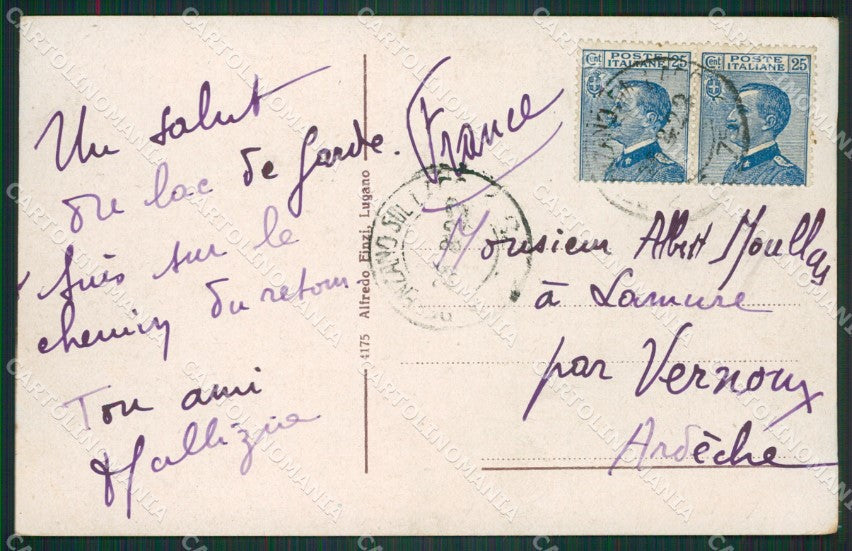 Un salut
du lac de Garde.
suis sur le
chemin du retour
Ton ami
(France)
Monsieur Albert Moullas
à Lamure
par Vernoux
Ardèche
4175 Alfredo Finzi, Lugano
Cent POSTE ITALIANE 25
Cent POSTE ITALIANE 25
CARTOLINOMANIA